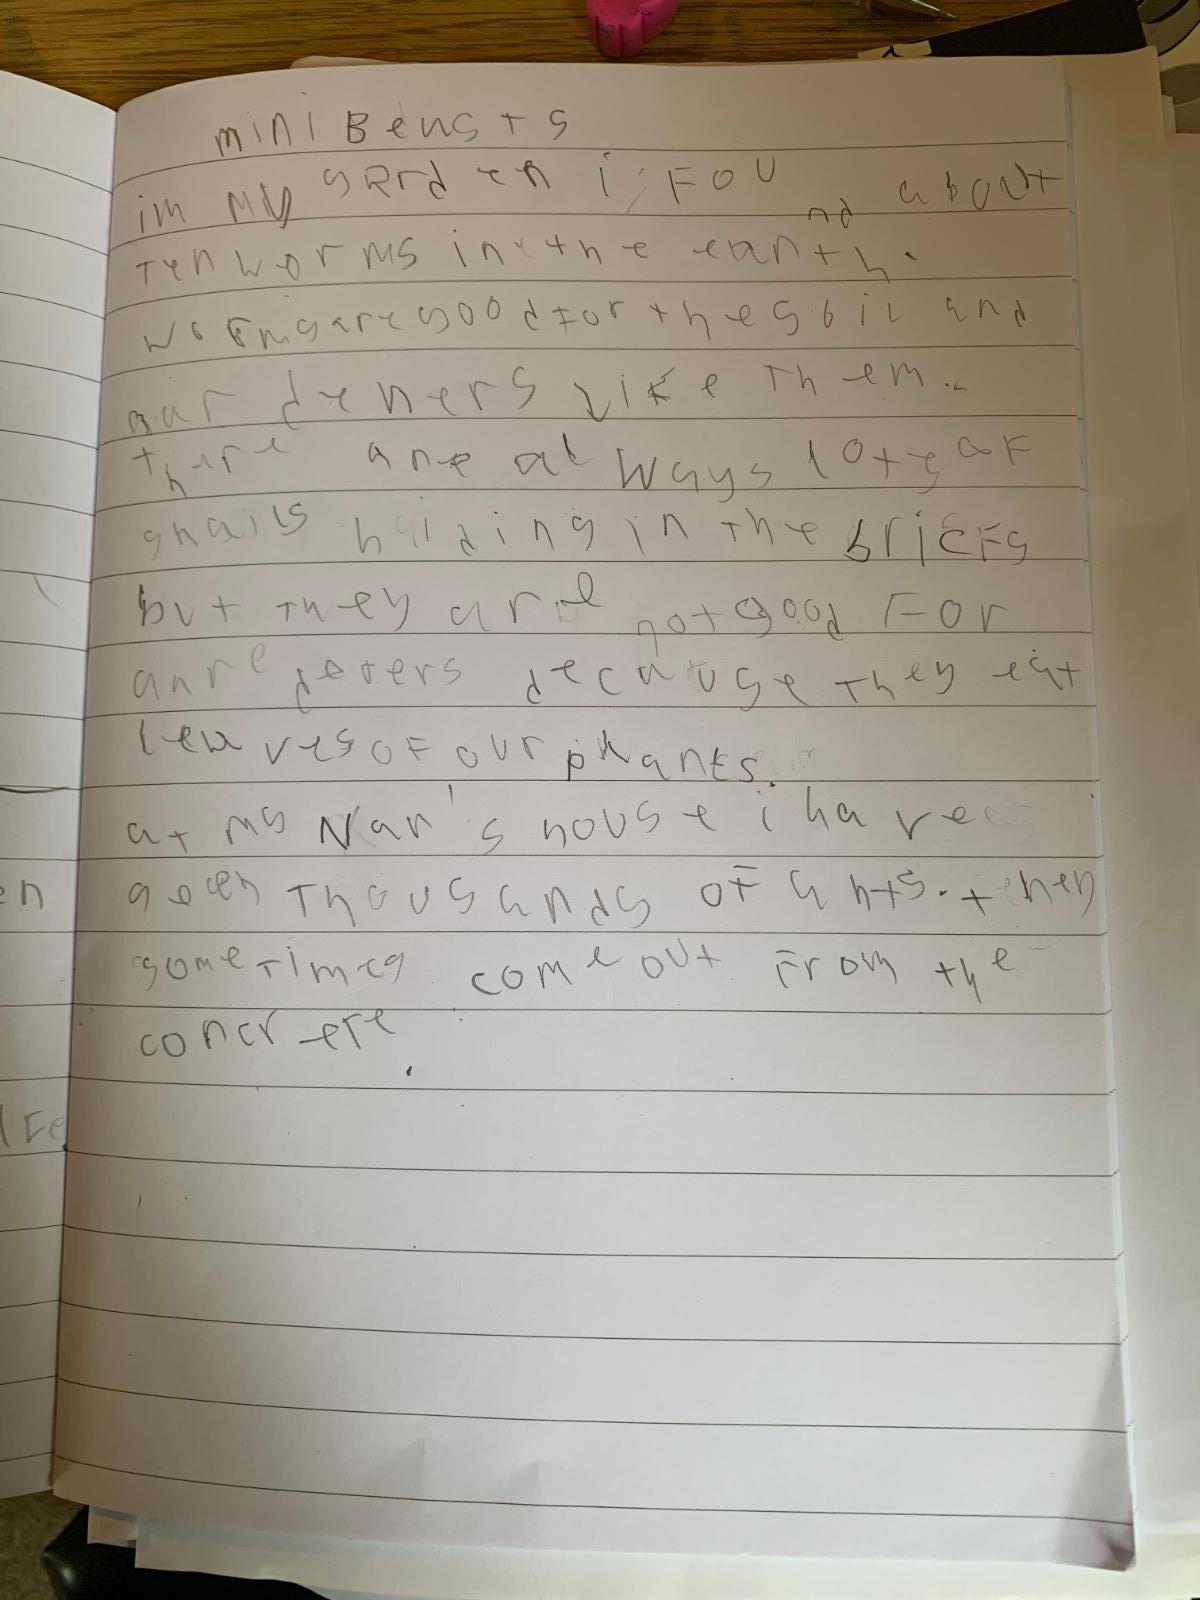 mini Beasts
im my garden i found about
Ten worms in the earth.
worms are good for the soil and
gardeners like Them.
there are always lots of
snails hiding in The bricks
but They are not good For
because They eat
leaves of our plants.
at my Nan's house i have
seen Thousands of ants. they
someTimes come out From the
concreTe.
en